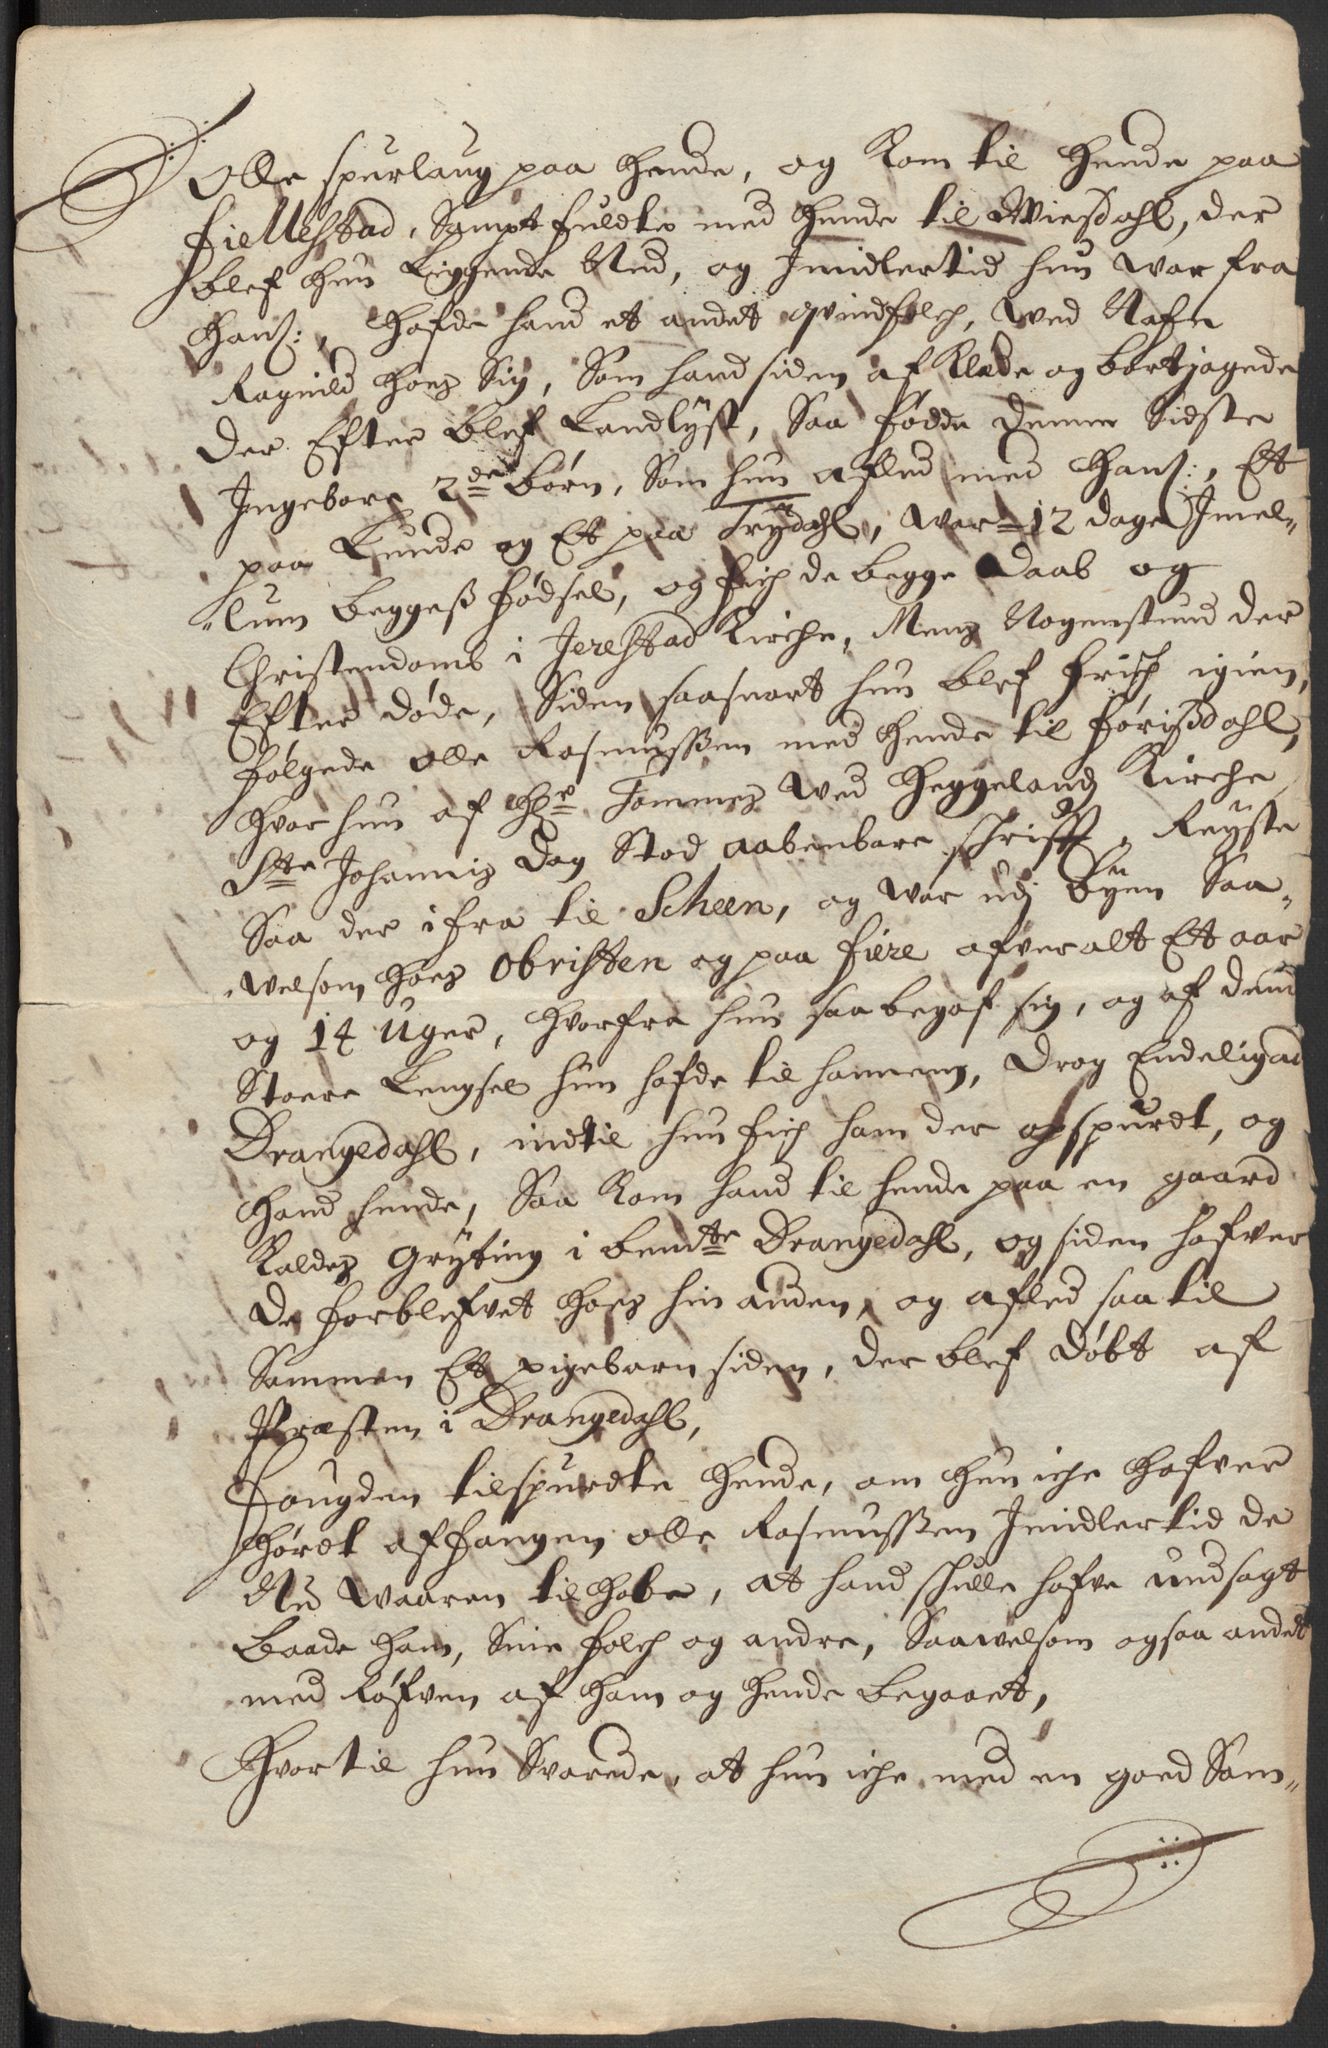 Olle spurlaug paa hende, og kom til hende paa
fiellestad, Sampt fuldte med hende til Wiesdahl, der
blef hun Liggende Ned, og Imidlertid hun war fra
hanβ:, hafde hand et andet qvindfolch, wed Nafn
Ragnild hoes Sig, Som hand siden af Klæde og bortjagede
der Efter blef Landlyst, Saa fødde denne Sidste
Ingebore 2de børn, Som hun afled med hanβ:, Et
paa Lunde og Et paa Trydahl, war 12 dage Imel-
lum beggeβ fødsel, og fich de begge Daab og
Christendomb i Jerestad Kirche, Mens Nogenstund der
Efter døde, Siden saasnart hun blef frisch igien,
følgede Olle Rasmussen med hende til førisdahl,
hvor hun af Hr Tommes wed Heggelands Kirche
Ste Johannis Dag Stod aabenbare schrifft, Reyste
Saa der ifra til Scheen, og war udj byen Saa-
welsom hoes Obristen og paa fiere ofveralt Et aar
og 14 Uger, hvorfra hun saa begaf sig, og af dend
Stoere Lengsel hun hafde til hannem, drog Endelig ad
Drangedahl, indtil hun fich ham der opspurdt, og
hand hende, Saa kom hand til hende paa en gaard
Kaldes Gryting i bemte Drangedahl, og siden hafver
de forblefvet hoes hin anden, og afled saa til
Sammen Et pigebarn siden, der blef døbt af
Præsten i Drangedahl,
Fougden tilspurdte hende, om hun iche hafver
hørdt af fangen Olle Rasmussen Imidlertid de
Nu waaren til hobe, at hand schulle hafve undsagt
baade ham, Sine folch og andre, Saawelsom ogsaa andet
med Røfven af ham og hende begaaet,
Hvortil hun Svarede, at hun iche med en goed Sam-